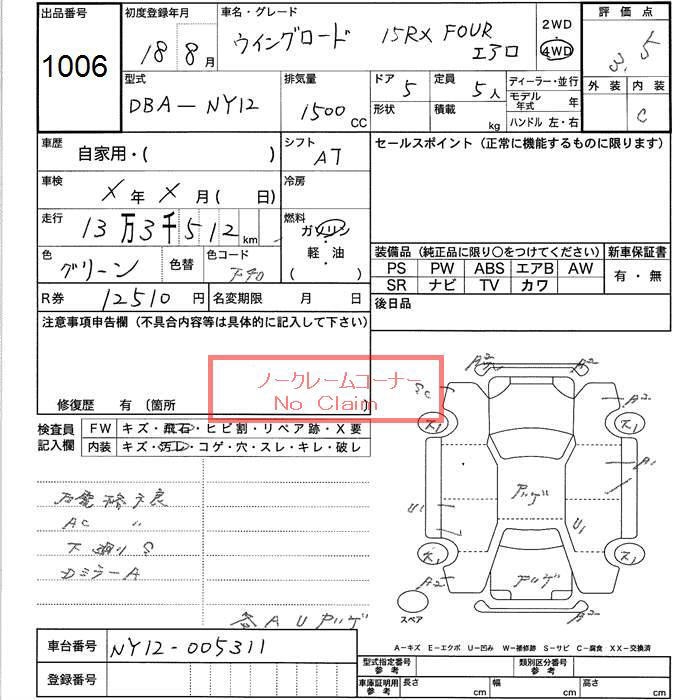 出品番号 1006
初度登録年月 18 8月
車名・グレード ウイングロード 15RX FOUR エアロ
2WD 4WD
評価点 3.5
外装 内装 C
型式 DBA-NY12
排気量 1500 CC
ドア 5 定員 5人
形状 積載 kg
ディーラー・並行
モデル年式 年
ハンドル 左・右
車歴 自家用・( )
シフト AT
車検 X年X月( 日)
冷房
走行 13万3千512 km
燃料 ガソリン・軽油 ( )
色 グリーン 色替 色コード
R券 12510円 名変期限 月 日
セールスポイント(正常に機能するものに限ります)
装備品(純正品に限り○をつけてください) 新車保証書
PS PW ABS エアB AW 有・無
SR ナビ TV カワ
後日品
注意事項申告欄(不具合内容等は具体的に記入して下さい)
ノークレームコーナー
No Claim
修復歴 有 (箇所
検査員記入欄
FW キズ・飛石・ヒビ割・リペア跡・X要
内装 キズ・汚レ・コゲ・穴・スレ・キレ・破レ
AC 〃
下廻りS
DミラーA
各AUアゲ
A2 A2
SC A2
X1 X1
A1
U1 アゲ U1
X1 X1
A2 アゲ A2
スペア
A-キズ E-エクボ U-凹み W-補修跡 S-サビ C-腐食 XX-交換済
車台番号 NY12-005311
登録番号
型式指定番号 参考 類別区分番号 参考
車庫証明用 参考 長さ cm 幅 cm 高さ cm